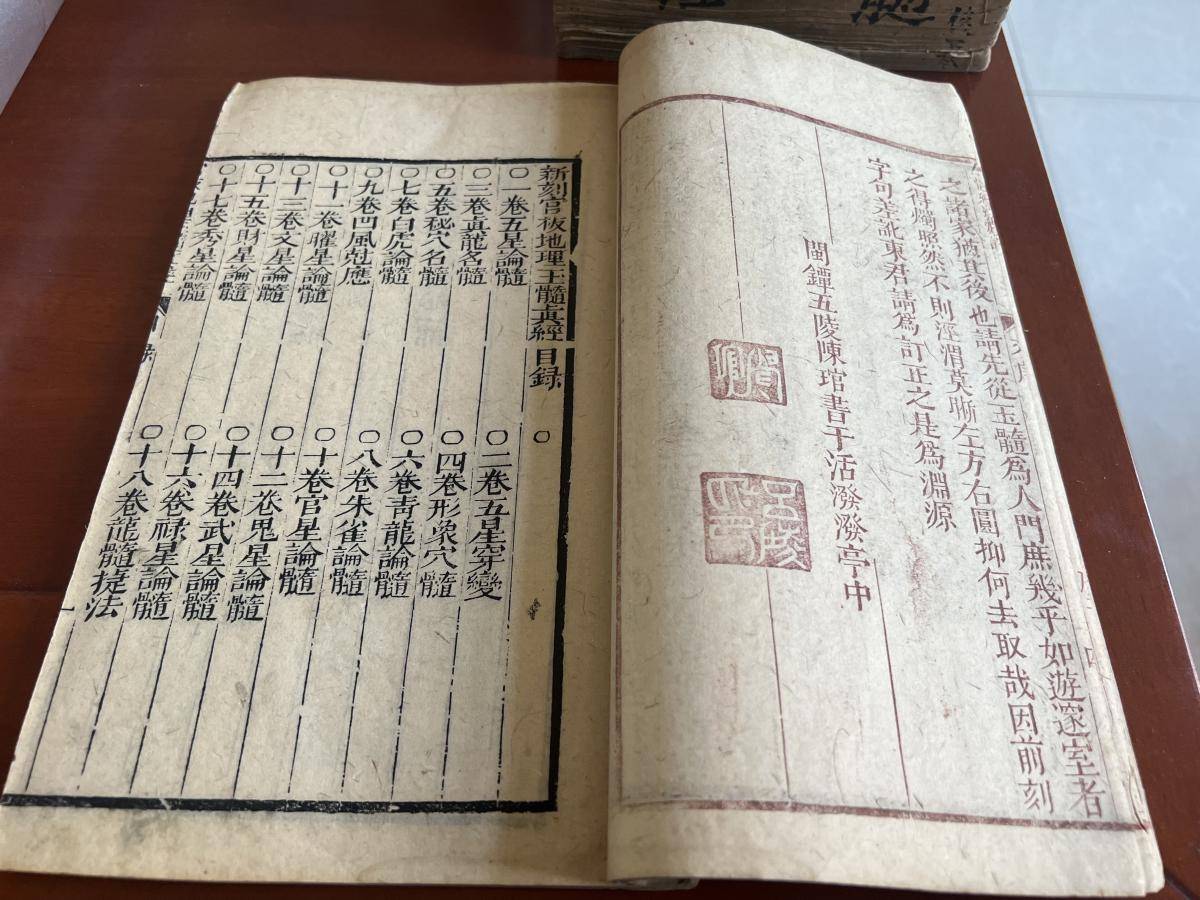 之諸家猶其後也請先從玉髓為入門庶幾乎如遊邃室者
之得燭照然不則涇渭莫晰左方右圓抑何去取哉因前刻
字句差訛東君請為訂正之是為淵源
閩鐔五陵陳琯書于活潑潑亭中
新刻官板地理玉髓眞經目録
〇一卷五星論髓 〇二卷五星穿變
〇三卷眞龍名髓 〇四卷形象穴髓
〇五卷秘穴名髓 〇六卷青龍論髓
〇七卷白虎論髓 〇八卷朱雀論髓
〇九卷凹風尅應 〇十卷官星論髓
〇十一卷曜星論髓 〇十二卷鬼星論髓
〇十三卷文星論髓 〇十四卷武星論髓
〇十五卷財星論髓 〇十六卷祿星論髓
〇十七卷秀星論髓 〇十八卷龍髓捷法